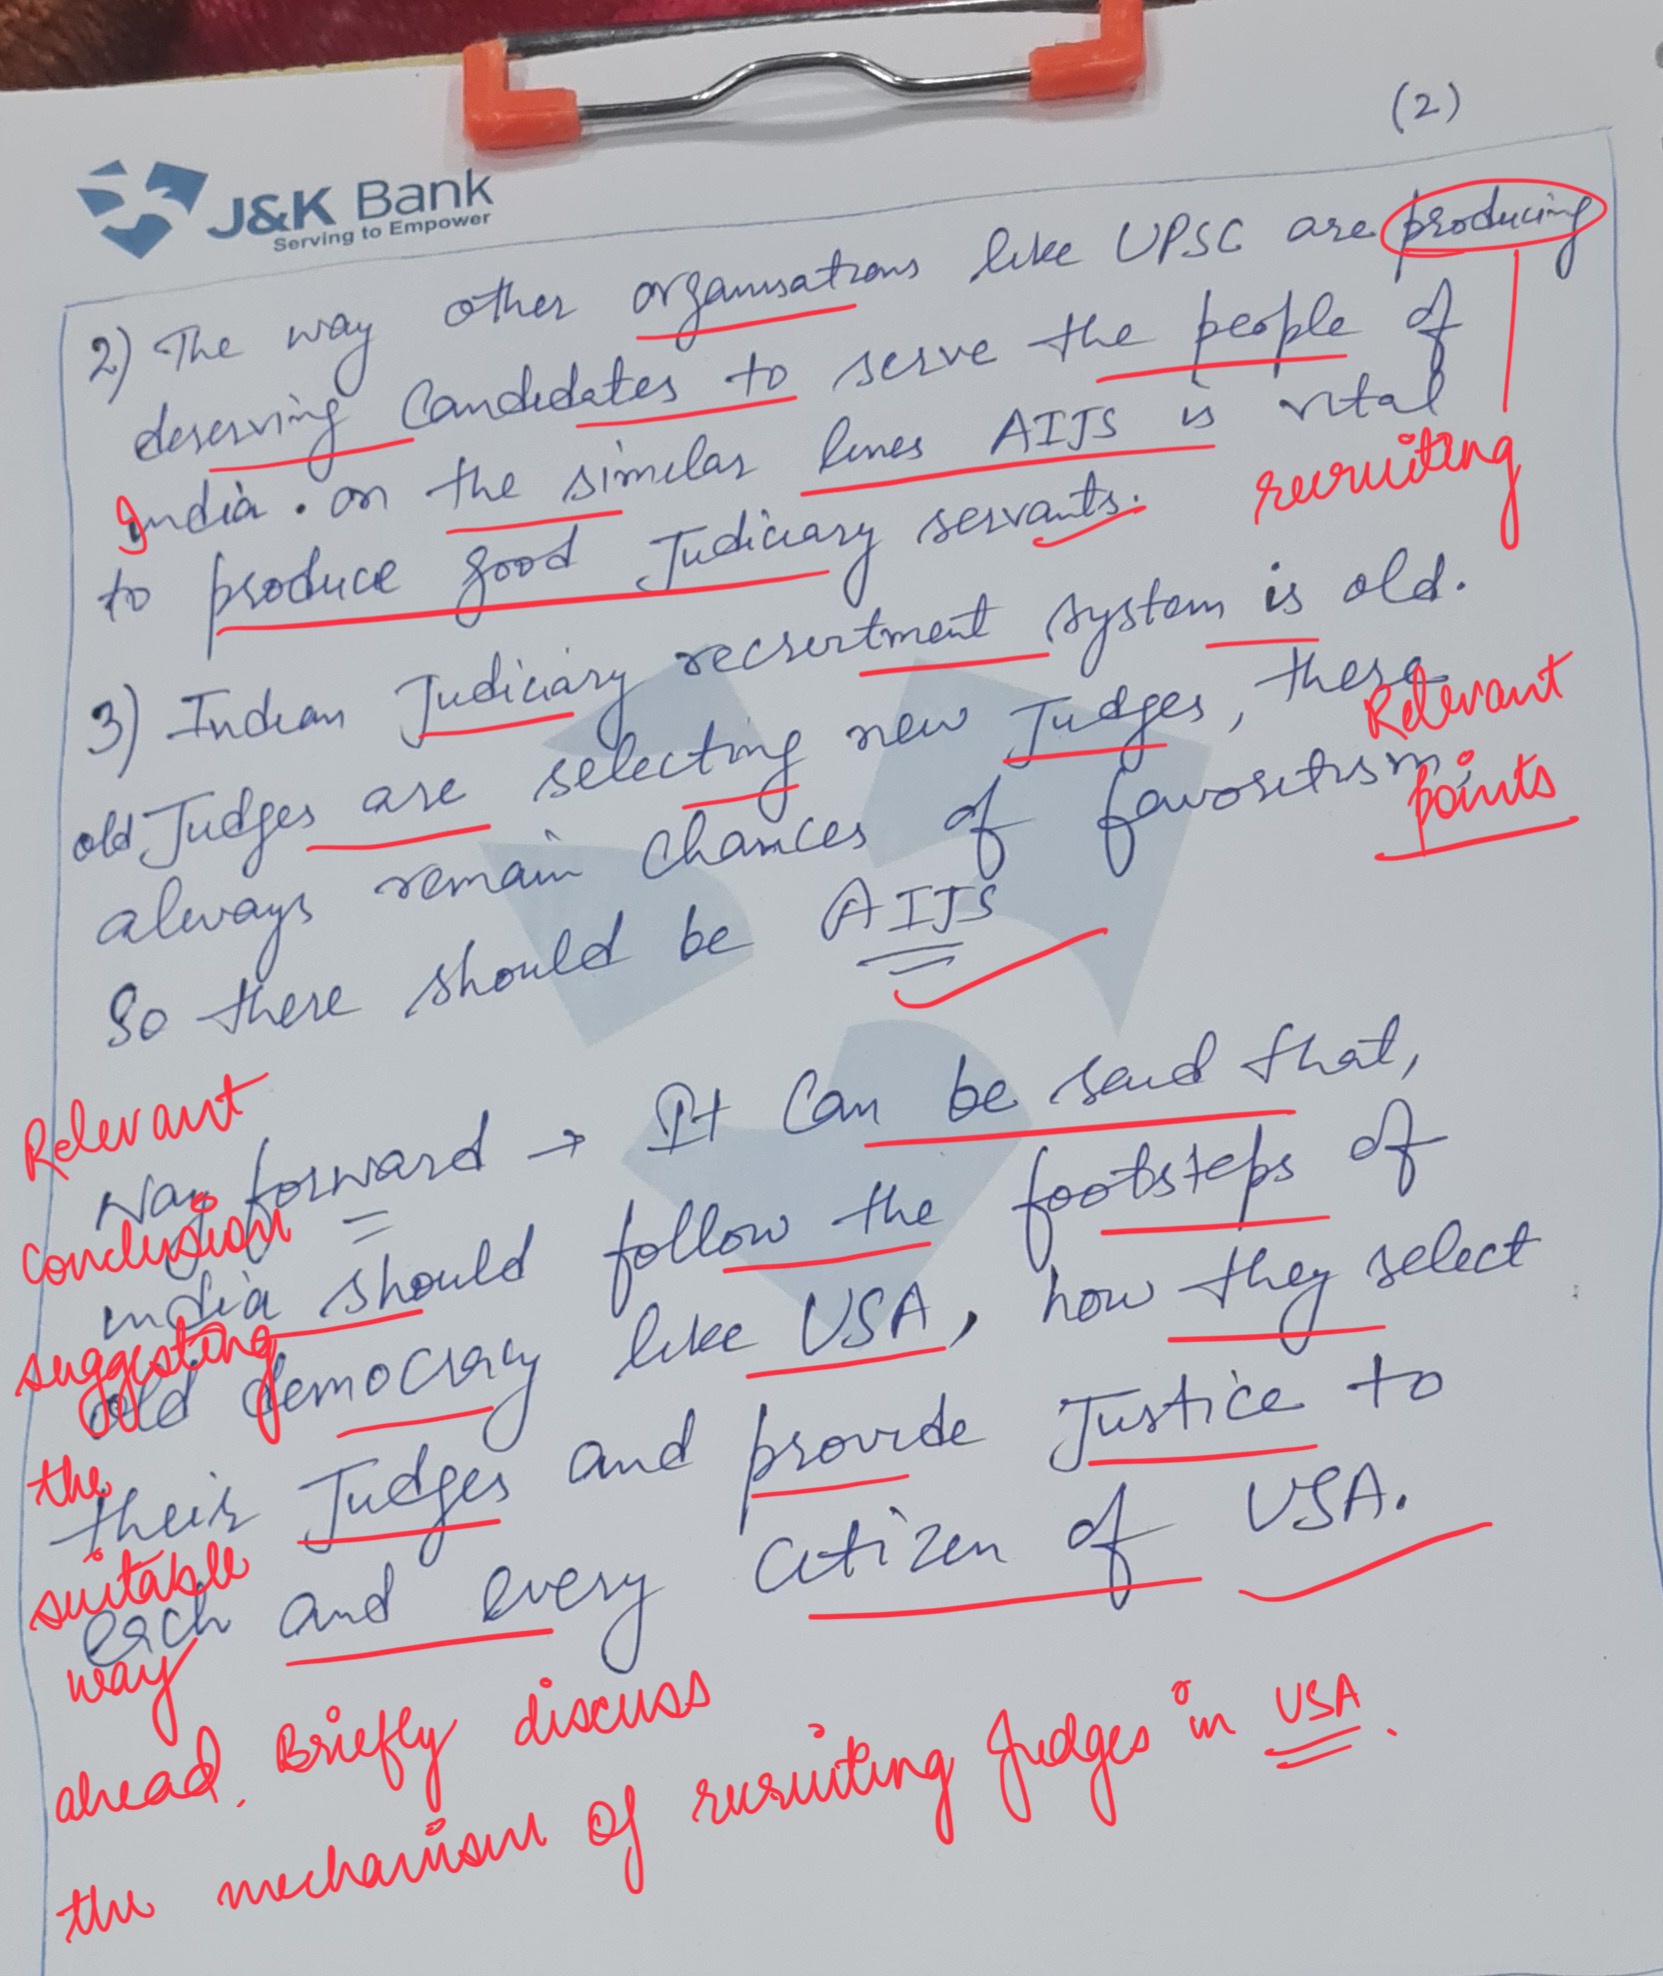 (2)
J&K Bank
Serving to Empower
2) The way other organisations like UPSC are producing
deserving candidates to serve the people of
India. on the similar lines AIJS is vital
recruiting
to produce good Judiciary servants.
3) Indian Judiciary recruitment system is old.
old Judges are selecting new Judges, there
Relevant
points
always remain chances of favoritism,
So there should be AIJS
Relevant
Way forward → It can be said that,
conclusion
india should follow the footsteps of
suggesting
old democracy like USA, how they select
the
their Judges and provide Justice to
suitable
each and every citizen of USA.
way
ahead. Briefly discuss
the mechanism of recruiting Judges in USA.